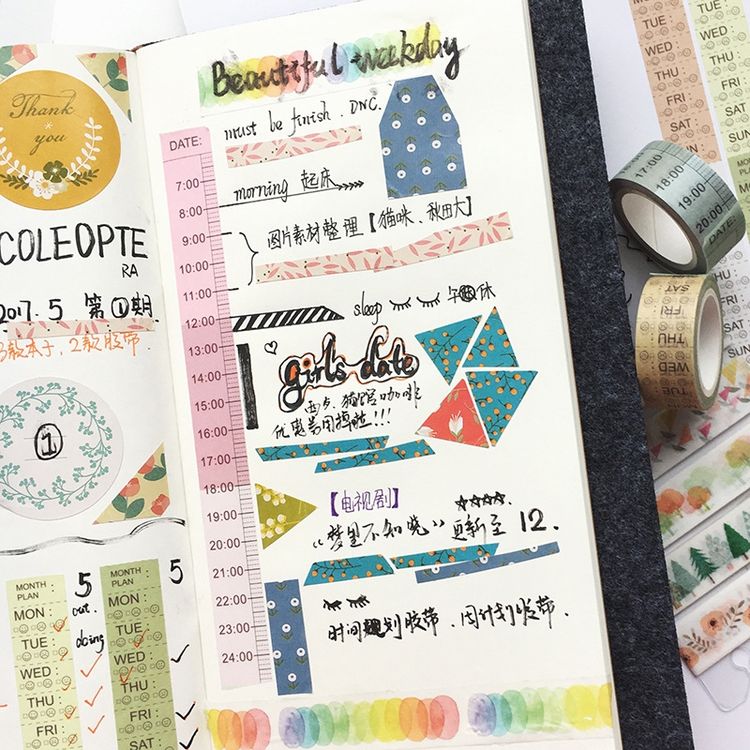 Thank
you
COLEOPTE
RA
2017.5 第①期
3款本子,2款胶带
1
MONTH PLAN 5
MON
TUE
WED
THU
FRI
SAT
out.
doing
MONTH PLAN 5
MON
TUE
WED
THU
FRI
SAT
Beautiful weekday
must be finish . DNC.
DATE:
7:00
8:00
9:00
10:00
11:00
12:00
13:00
14:00
15:00
16:00
17:00
18:00
19:00
20:00
21:00
22:00
23:00
24:00
morning 起床
图片素材整理【猫咪、秋田犬】
sleep 午休
girl's date
西点、猫馆咖啡
优惠券用掉啦!!!
【电视剧】
“梦里不知晓”更新至 12.
时间规划胶带、周计划胶带.
17:00
18:00
19:00
20:00
DATE:
SAT
FRI
THU
WED
TUE :
WED :
THU :
FRI :
SAT :
SUN :
TUE :
WED :
THU :
FRI :
SAT :
SUN :